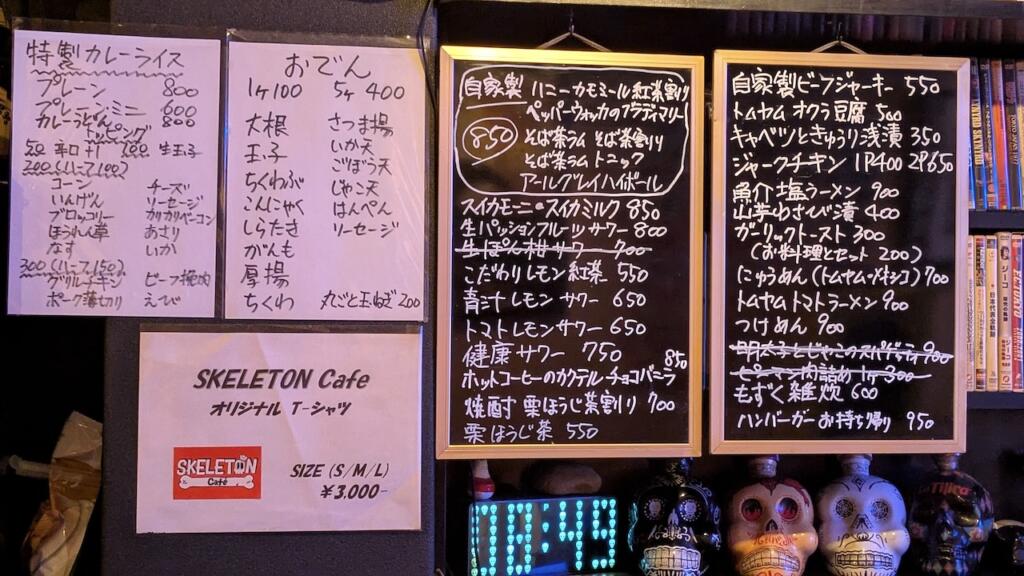 特製カレーライス
プレーン 800
プレーンミニ 600
カレーうどん 800
トッピング
50 辛口
100 生玉子
200(ハーフ100)
コーン チーズ
いんげん ソーセージ
ブロッコリー カリカリベーコン
ほうれん草 あさり
なす いか
300(ハーフ150)
グリルチキン ビーフ挽肉
ポーク薄切り えび
おでん
1ヶ100 5ヶ 400
大根 さつま揚
玉子 いか天
ちくわぶ ごぼう天
こんにゃく じゃこ天
しらたき はんぺん
がんも ソーセージ
厚揚
ちくわ 丸ごと玉ねぎ 200
SKELETON Cafe
オリジナル T-シャツ
SKELETON
Café
SIZE (S/M/L)
¥3,000-
自家製 ハニーカモミール紅茶割り
ペッパーウォッカのブラディマリー
850 そば茶ラム そば茶割り
そば茶ラム トニック
アールグレイハイボール
スイカモーニ・スイカミルク 850
生パッションフルーツサワー 800
生ぽん柑サワー 700
こだわりレモン紅茶 550
青汁レモンサワー 650
トマトレモンサワー 650
健康サワー 750
850
ホットコーヒーのカクテル-チョコバニラ
焼酎 栗ほうじ茶割り 700
栗ほうじ茶 550
自家製ビーフジャーキー 550
トムヤム オクラ豆腐 500
キャベツときゅうり浅漬 350
ジャークチキン 1P400 2P650
魚介塩ラーメン 900
山芋わさび漬 400
ガーリックトースト 300
(お料理とセット 200)
にゅうめん(トムヤム・メキシコ)700
トムヤムトマトラーメン 900
つけめん 900
明太子とじゃこのスパゲティ 900
ピーマン肉詰め 1ヶ 300
もずく雑炊 600
ハンバーガーお持ち帰り 950